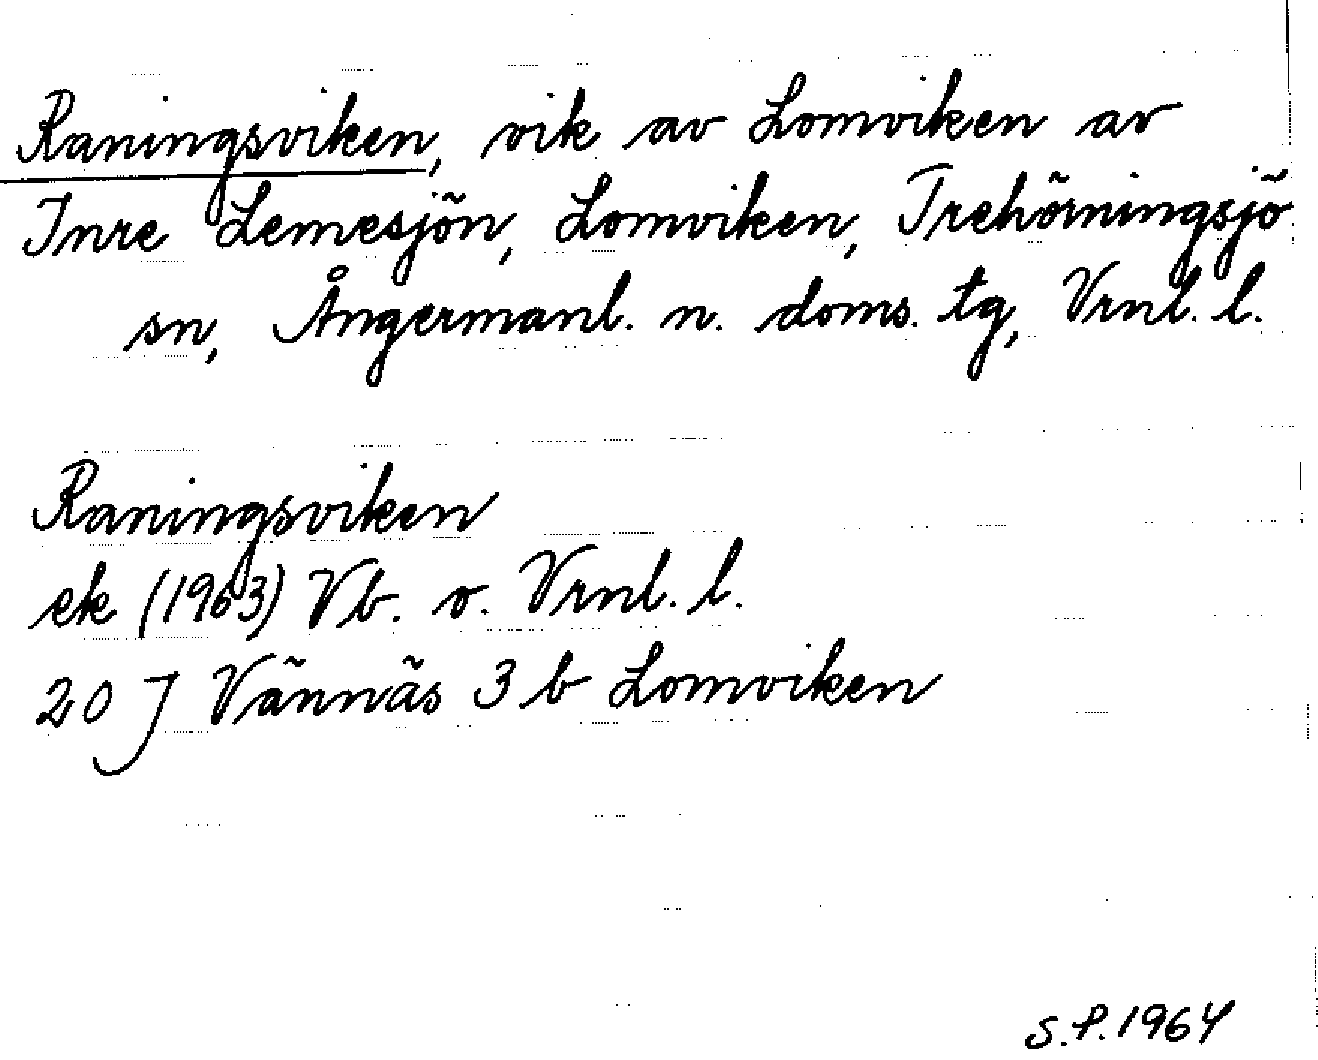 Raningsviken, vik av Lomviken av
Inre Lemesjön, Lomviken, Trehörningsjö
sn, Ångermanl. n. doms. tg, Vrnl. l.
Raningsviken
ek (1963) Vb. o. Vrnl. l.
20 J Vännäs 3 b Lomviken
S.P. 1964